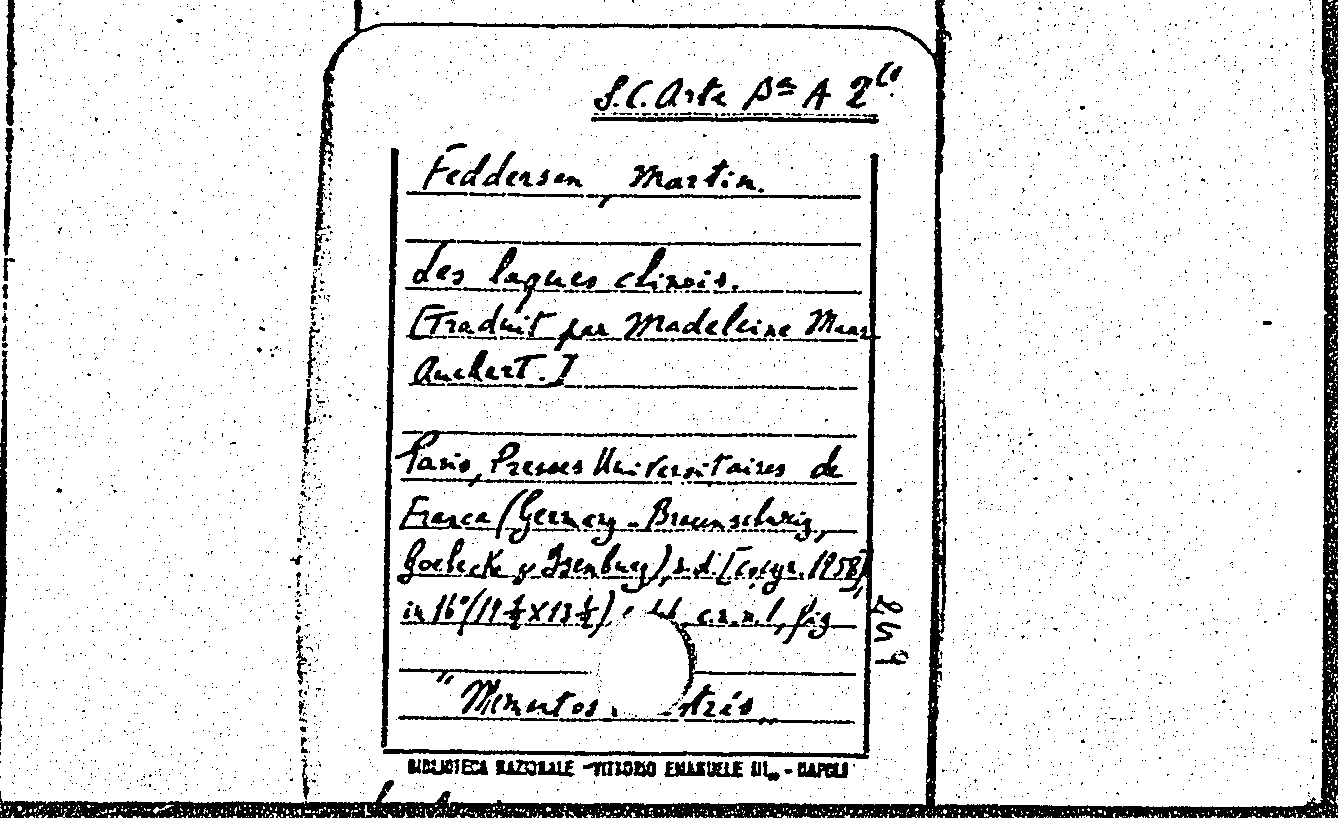 S.C. Arte Bª A 2
Feddersen, Martin.
Les laques chinois.
[Traduit par Madeleine Maur
Auchert.]
Paris, Presses Universitaires de
France (Germany - Braunschweig,
Goebecke y Isenburg), s.d. [copyr. 1958],
in 16° (19 ½ X 13 ½) c.s.n.l, fig
"Mementos
BIBLIOTECA NAZIONALE "VITTORIO EMANUELE III" - NAPOLI
249